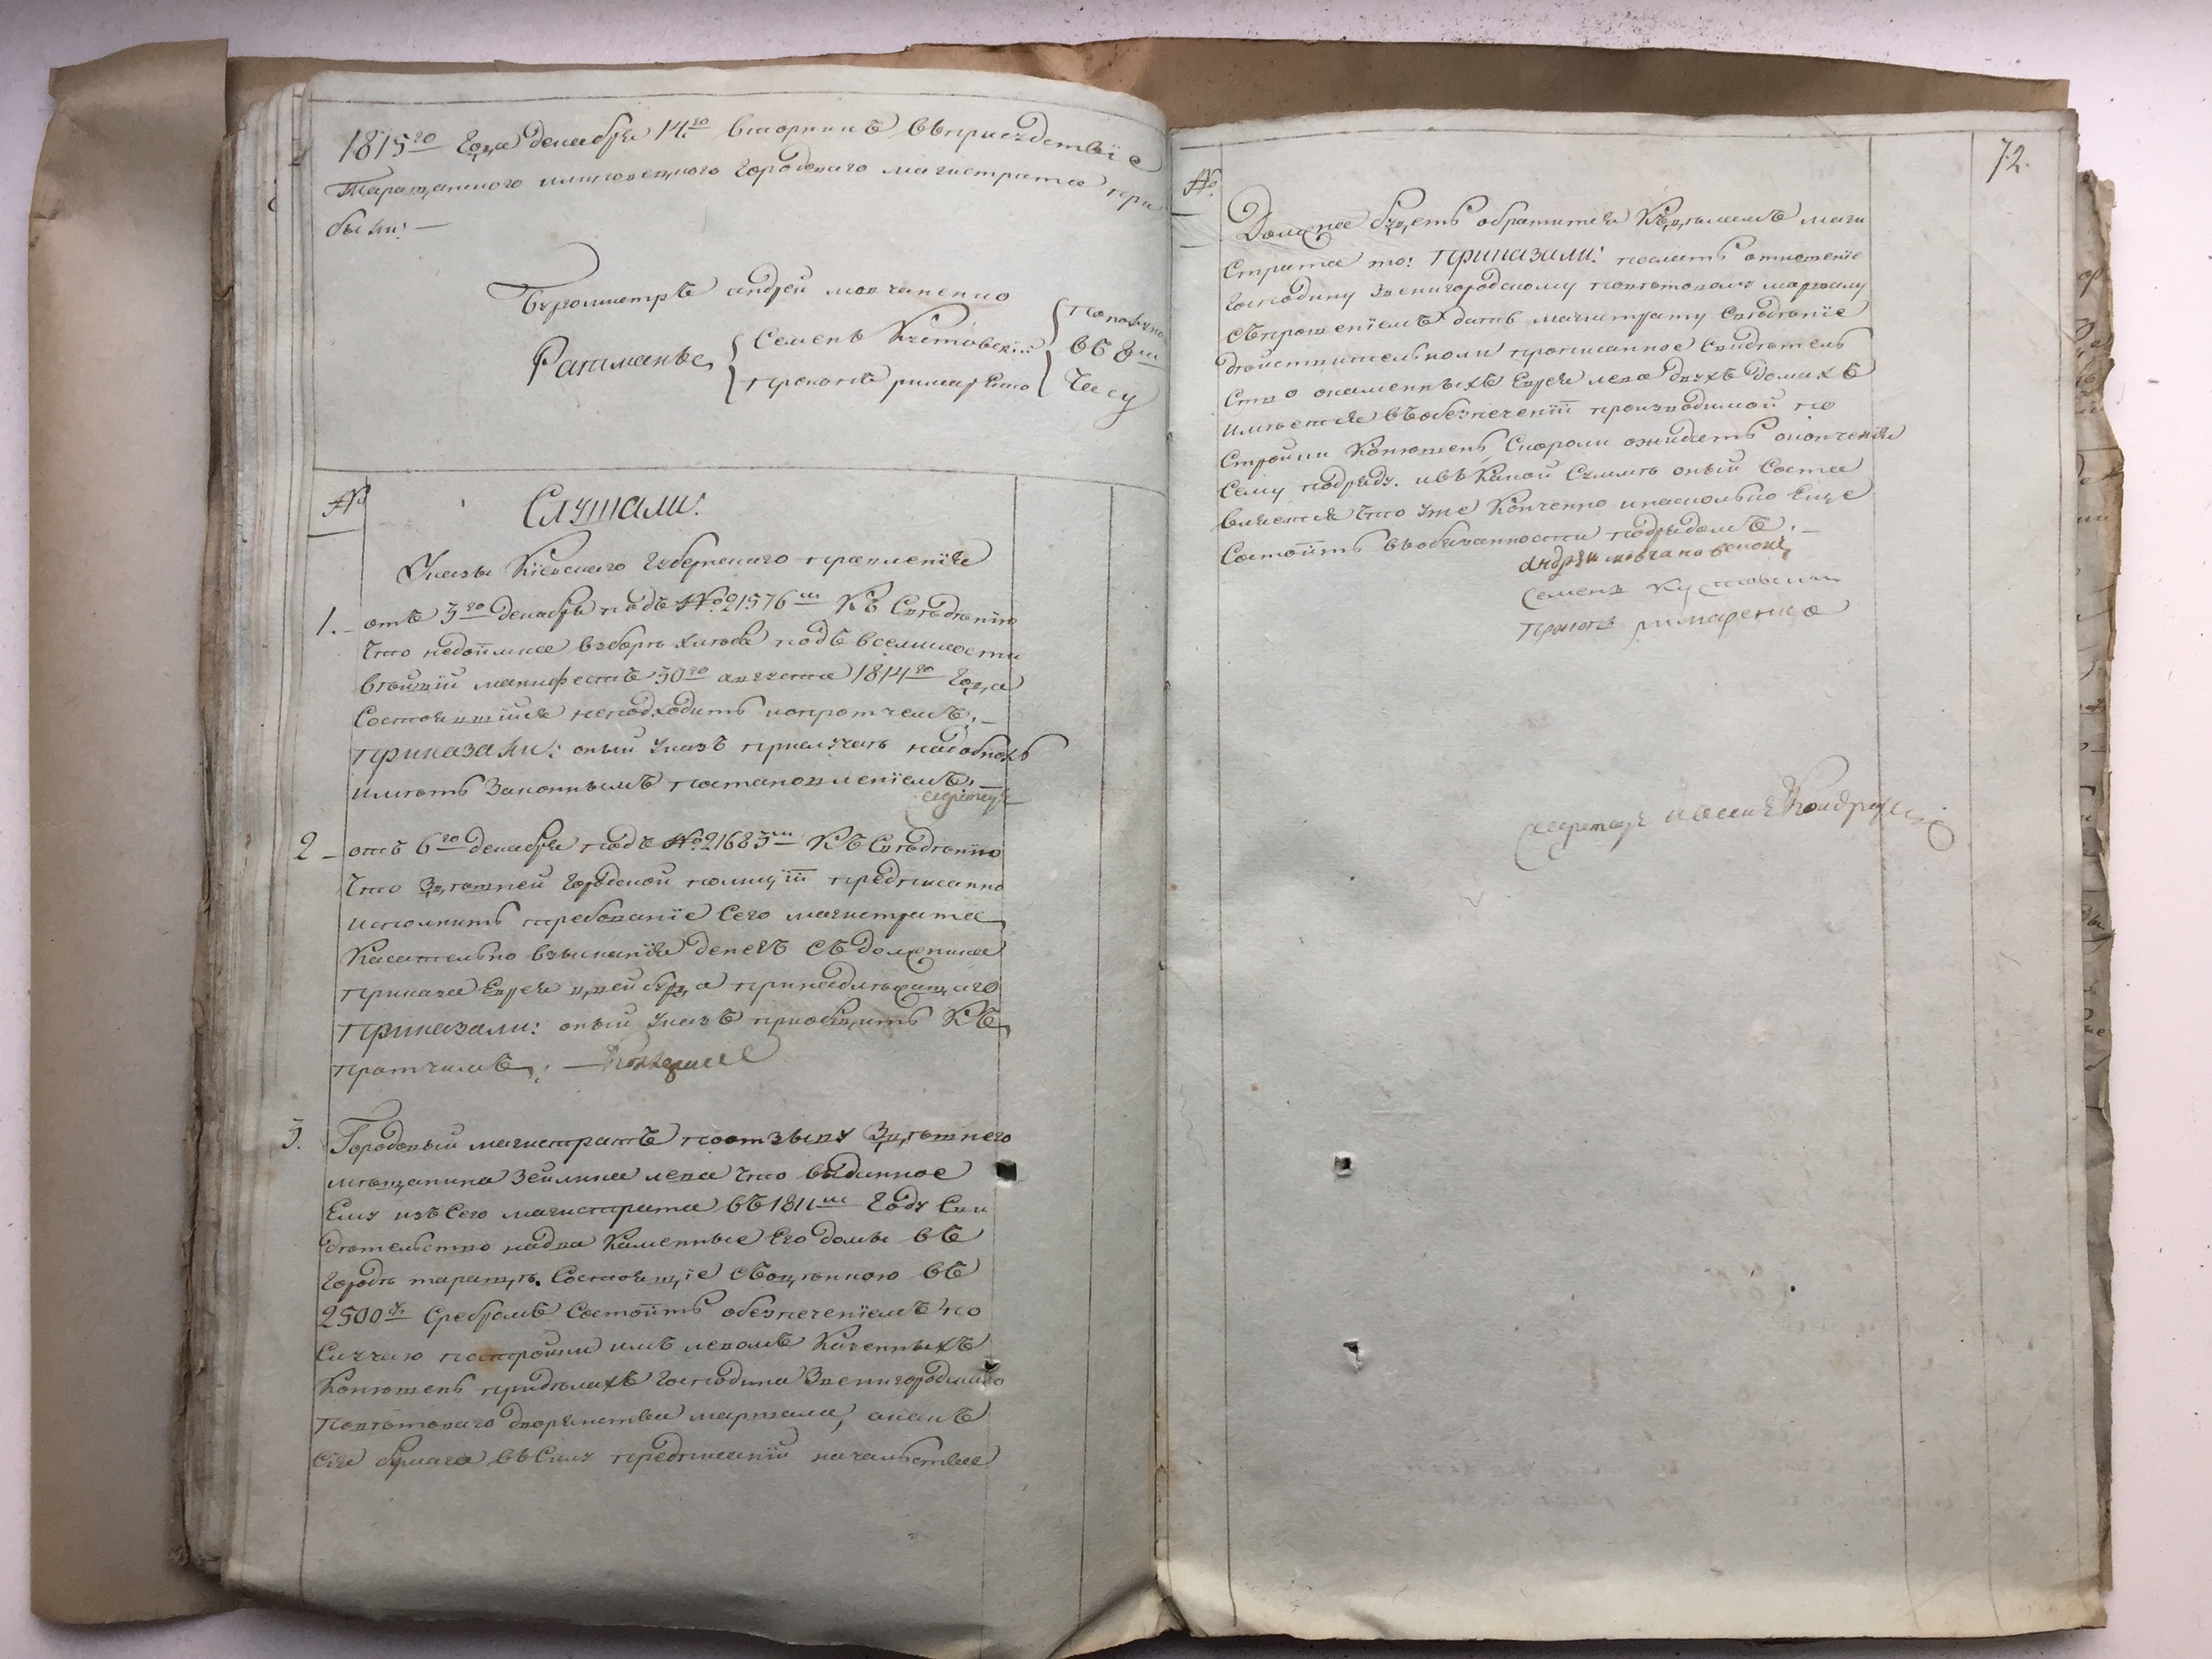 1815го Года декабря 14го вторникъ въ присудствїе
Таращанского именованного городового магистрата при
были: —
Бурмистръ андрей мовчаненко
Ратманы
Семенъ Кустовскїй
прокопъ римаренко
по полуно
въ 8м
часу
№
Слушали:
Указы Кїевскаго Губернского правленїя
1. — отъ 3го декабря подъ №21576м Къ Сведенїю
что недоимка
въ манифестъ 30го августа 1814го Года
Состоявшїйся неподходитъ и протчемъ. —
приказали: оный указъ
иметь Законнымъ постановленїемъ. —
секретарь
2 — отъ 6го декабря подъ №21683м Къ Сведенїю
что Здешней городской полицїи предписанно
исполнить требованїе Сего магистрата
Касательно взысканїя денегъ съ должника
приказали: оный указъ прїобщить Къ
протчимъ. —
3. Городовый магистратъ по отзыву Здешнего
мещанина Зейлика лева что выданное
Ему изъ Сего магистрата въ 1811м Году Сви
детельство на два Каменные Его домы въ
Городе тараще Состоящїе съ оценкою въ
2500 Сребромъ Состоитъ обезпеченїемъ по
Случаю постройки имъ левомъ Казенныхъ
Конюшень при домахъ Господина Звенигородского
Поветоваго дворянства маршала, а какъ
Сїя бумага въ Силу предписанїй начальства
72.
№
Должна будетъ обратится Къ маги
Страта то: приказали: послать отношенїе
Господину Звенигородскому поветовому маршалу
съ прошенїемъ дать магистрату Сведенїе
действительноли прописанное Свидетель
Ство о каменныхъ Еврея лева двухъ домахъ
имеется въ обезпеченїи производимой по
Стройки Конюшень, Скороли ожидать окончанїя
Сему подряду. и въ Какой Сумме оный Соста
вляется что уже Конченно и насколько Еще
Состоитъ въ обязанности подрядомъ. —
андрей
Семенъ Кустовский
прокопъ римаренко
Секретарь